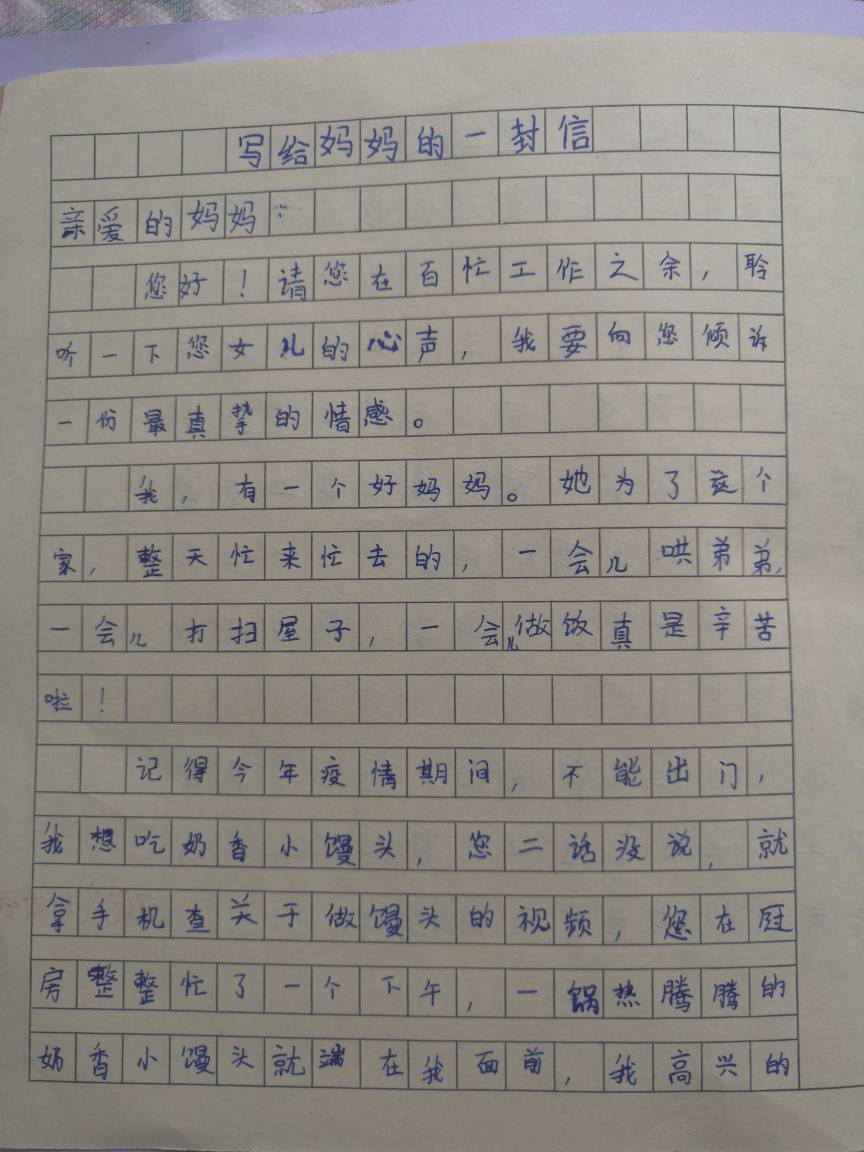 写给妈妈的一封信
亲爱的妈妈：
您好！请您在百忙工作之余，聆
听一下您女儿的心声，我要向您倾诉
一份最真挚的情感。
我，有一个好妈妈。她为了这个
家，整天忙来忙去的，一会儿哄弟弟，
一会儿打扫屋子，一会儿做饭真是辛苦
啦！
记得今年疫情期间，不能出门，
我想吃奶香小馒头，您二话没说，就
拿手机查关于做馒头的视频，您在厨
房整整忙了一个下午，一锅热腾腾的
奶香小馒头就端在我面前，我高兴的